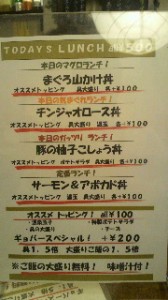 TODAY'S LUNCH all 500
本日のマグロランチ!
まぐろ山かけ丼
オススメトッピング 具大盛り 各+¥100
本日の気まぐれランチ!
チンジャオロース丼
オススメトッピング 温玉 具大盛り 各+¥100
本日のガッツリランチ!
豚の柚子こしょう丼
オススメトッピング 具大盛り 各+¥100
定番ランチ!
サーモン&アボカド丼
オススメトッピング 温玉 具大盛り 各+¥100
オススメ トッピング! all ¥100
・具の大盛り
ギョバースペシャル! +¥200
具1.5倍 大盛りご飯の1.5倍
※ご飯の大盛り無料! 味噌汁付!